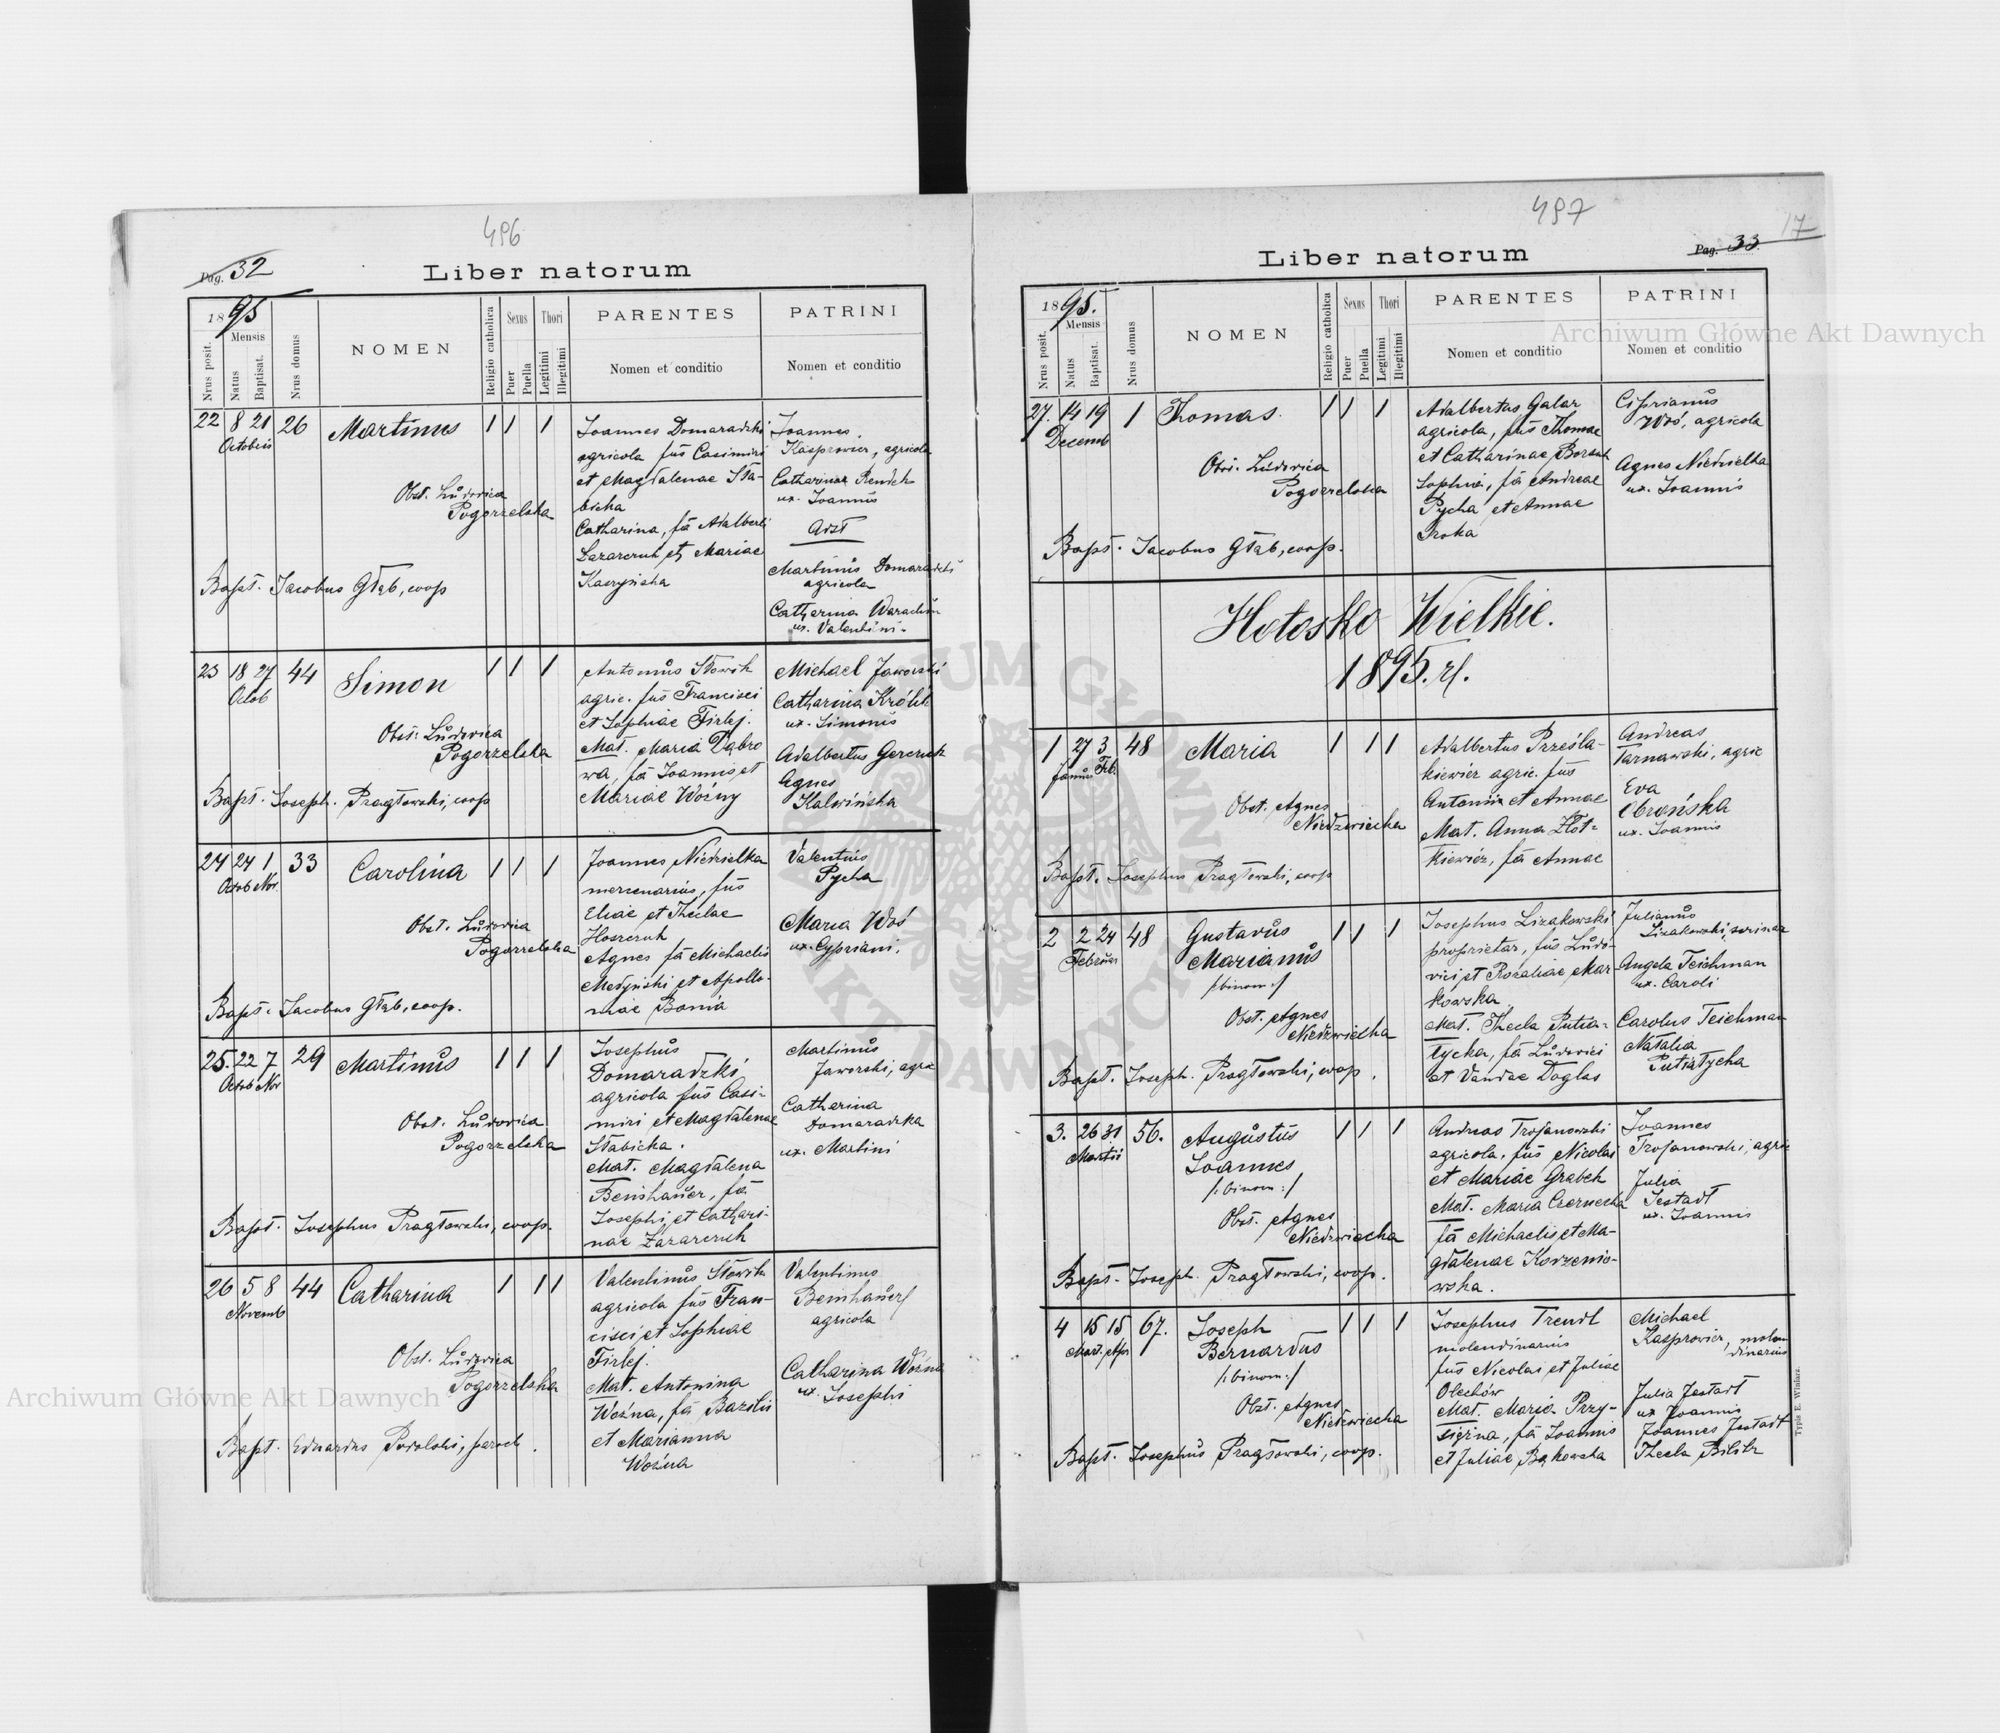 496
Pag. 32
Liber natorum
1895
Nrus posit.
Mensis
Natus
Baptisat.
Nrus domus
NOMEN
Religio catholica
Sexus
Puer
Puella
Thori
Legitimi
Illegitimi
PARENTES
Nomen et conditio
PATRINI
Nomen et conditio
22 8 21 26 Martinus 1 1 1
Octobris
Obst. Ludovica
Pogorzelska
Joannes Domaradzki
agricola fus Casimiri
et Magdalenae Sła-
bicka
Catharina, fa Adalberti
Lazarczuk et Mariae
Joannes
Kasprowicz, agricola
Catharina Rendek
ux. Joannis
Adst
Martinus Domaradzki
agricola
Catharina
ux. Valentini.
Bapt. Jacobus Głąb, coop
23 18 27 44 Simon 1 1 1
Octob
Obst. Ludovica
Pogorzelska
Antonius Słowik
agric. fus Francisci
et Sophiae Firlej.
Mat. Maria Dąbro
wa, fa Joannis et
Mariae Woźny
Michael Jaworski
Catharina Królik
ux. Simonis
Adalbertus
Agnes
Kalwińska
Bapt. Joseph. Pragłowski, coop
24 24 1 33 Carolina 1 1 1
Octob Nov.
Obst. Ludovica
Pogorzelska
Joannes Niedzielka
mercenarius, fus
Eliae et Theclae
Hoszczuk
Agnes fa Michaelis
Medyński et Apollo-
niae Bania
Valentius
Pycha
Maria Woś
ux. Cypriani.
Bapt. Jacobus Głąb, coop.
25. 22 7 29 Martinus 1 1 1
Octob Nov
Obst. Ludovica
Pogorzelska
Josephus
Domaradzki
agricola fus Casi-
miri et Magdalenae
Słabicka.
Mat. Magdalena
Beinhauer, fa
Josephi et Cathari-
nae Lazarczuk
Martinus
Jaworski, agric
Catharina
Domaradzka
ux. Martini
Bapt. Josephus Pragłowski, coop.
26 5 8 44 Catharina 1 1 1
Novemb
Obst. Ludovica
Pogorzelska
Valentinus Słowik
agricola fus Fran-
cisci et Sophiae
Firlej.
Mat. Antonina
Woźna, fa Bazilii
et Marianna
Woźna
Valentinus
Beinhauer
agricola
Catharina Woźna
ux. Josephi
Bapt. Eduardus Podolski, paroch.
497
17
Pag. 33
Liber natorum
1895.
Nrus posit.
Mensis
Natus
Baptisat.
Nrus domus
NOMEN
Religio catholica
Sexus
Puer
Puella
Thori
Legitimi
Illegitimi
PARENTES
Nomen et conditio
PATRINI
Nomen et conditio
27. 14 19 1 Thomas. 1 1 1
Decemb
Obst. Ludovica
Pogorzelska
Adalbertus Galar
agricola, fus Thomae
et Catharinae
Sophia, fa Andreae
Pycha et Annae
Sroka
Ciprianus
Woś, agricola
Agnes Niedzielka
ux. Joannis
Bapt. Jacobus Głąb, coop.
Hołosko Wielkie.
1895. r.
1 27 3 48 Maria 1 1 1
Januar Feb.
Obst. Agnes
Niedzwiecka
Adalbertus Prześla-
kiewicz agric. fus
Antonii et Annae
Mat. Anna Złot-
kiewicz, fa Annae
Andreas
Tarnawski, agric
Eva
Obrońska
ux. Joannis
Bapt. Josephus Pragłowski, coop
2 2 24 48 Gustavus 1 1 1
Februar
Marianus
/:binom:/
Obst. Agnes
Niedzwiecka
Josephus Lizakowski
proprietar, fus Ludo-
vici et Rozaliae Mar-
kowska
Mat. Thecla Putia-
tycka, fa Ludovici
et Vandae Doglas
Julianus
Lizakowski,
Angela Teichman
ux. Caroli
Carolus Teichman
Natalia
Putiatycka
Bapt. Joseph. Pragłowski, coop.
3. 26 31 56. Augustus 1 1 1
Martii
Joannes
/:binom:/
Obst. Agnes
Niedzwiecka
Andreas Trojanowski
agricola, fus Nicolai
et Mariae Grabek
Mat. Maria Czernecka
fa Michaelis et Ma-
gdalenae Korzenio-
wska.
Joannes
Trojanowski, agric
Julia
Jestadt
ux. Joannis
Bapt. Joseph. Pragłowski, coop.
4 15 15 67. Joseph 1 1 1
Mart. Apr
Bernardus
/:binom:/
Obst. Agnes
Niedzwiecka
Josephus Trendl
molendinarius
fus Nicolai et Juliae
Olechów
Mat. Maria Przy-
siężna, fa Joannis
et Juliae Bąkowska
Michael
Kasprowicz, molen
dinarius
Julia Jestadt
ux Joannis
Joannes Jestadt
Thecla Bilik
Bapt. Josephus Pragłowski, coop.
Typis E. Winiarz.
Archiwum Główne Akt Dawnych
Archiwum Główne Akt Dawnych